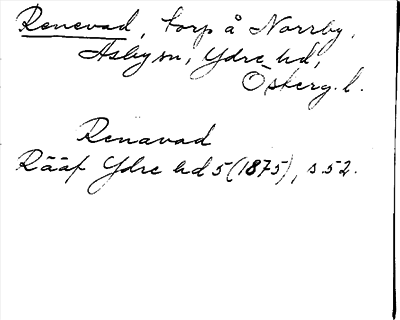 Renevad, torp å Norrby,
Asby sn, Ydre hd,
Österg. l.
Renavad
Rääf Ydre hd 5 (1875), s. 52.